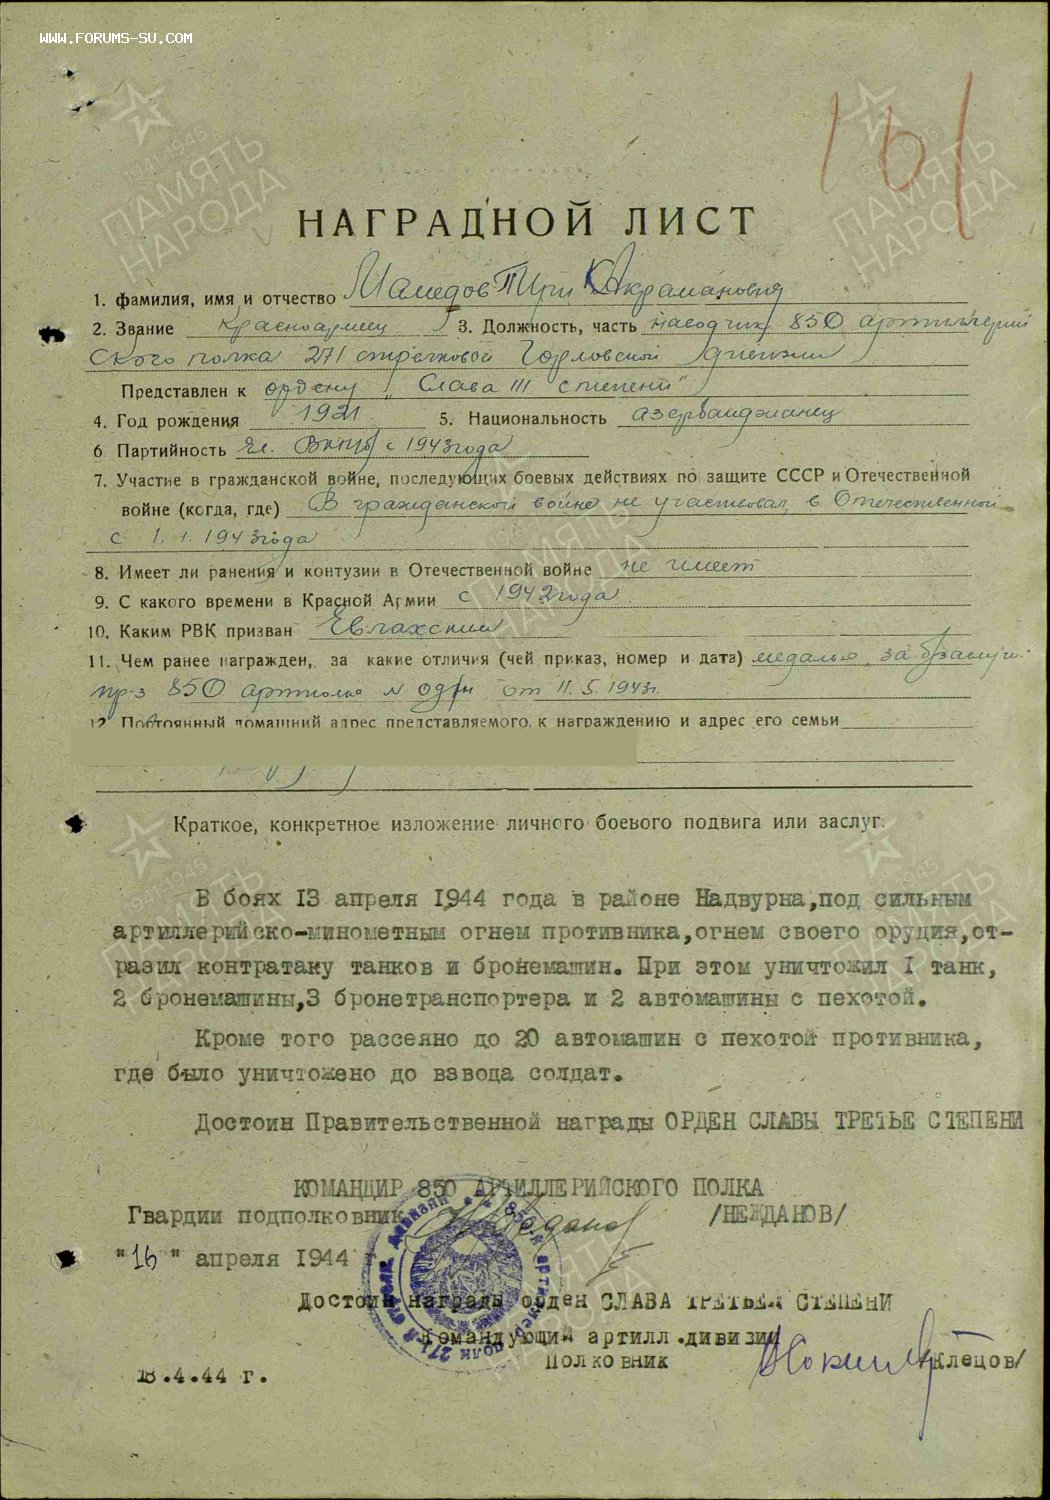 www.forums-su.com
161
НАГРАДНОЙ ЛИСТ
1. фамилия, имя и отчество Мамедов Акраманович
2. Звание Красноармеец 3. Должность, часть наводчик 850 артиллерий
ского полка 271 стрелковой Горловской дивизии
Представлен к ордену „Слава III степени"
4. Год рождения 1921 5. Национальность азербайджанец
6 Партийность Чл. ВКПб с 1943 года
7. Участие в гражданской войне, последующих боевых действиях по защите СССР и Отечественной
войне (когда, где) В гражданской войне не участвовал, в Отечественной
с 1.1.1943 года
8. Имеет ли ранения и контузии в Отечественной войне не имеет
9. С какого времени в Красной Армии с 1942 года
10. Каким РВК призван Евлахским
11. Чем ранее награжден, за какие отличия (чей приказ, номер и дата) медалью „за б/заслуги"
пр-з 850 артполка N от 11.5.1943г.
12 Постоянный домашний адрес представляемого к награждению и адрес его семьи
Краткое, конкретное изложение личного боевого подвига или заслуг.
В боях 13 апреля 1944 года в районе Надвурна,под сильным
артиллерийско-минометным огнем противника,огнем своего орудия,от-
разил контратаку танков и бронемашин. При этом уничтожил I танк,
2 бронемашины,3 бронетранспортера и 2 автомашины с пехотой.
Кроме того рассеяно до 20 автомашин с пехотой противника,
где было уничтожено до взвода солдат.
Достоин Правительственной награды ОРДЕН СЛАВЫ ТРЕТЬЕ СТЕПЕНИ
КОМАНДИР 850 АРТИЛЛЕРИЙСКОГО ПОЛКА
Гвардии подполковник /НЕЖДАНОВ/
"16" апреля 1944 г
Достоин награды орден СЛАВА ТРЕТЬЕЙ СТЕПЕНИ
Командующий артилл.дивизии
Полковник /Клецов/
18.4.44 г.
850-й артиллер. полк 271-й стрелк. дивизии
ПАМЯТЬ НАРОДА
1941-1945